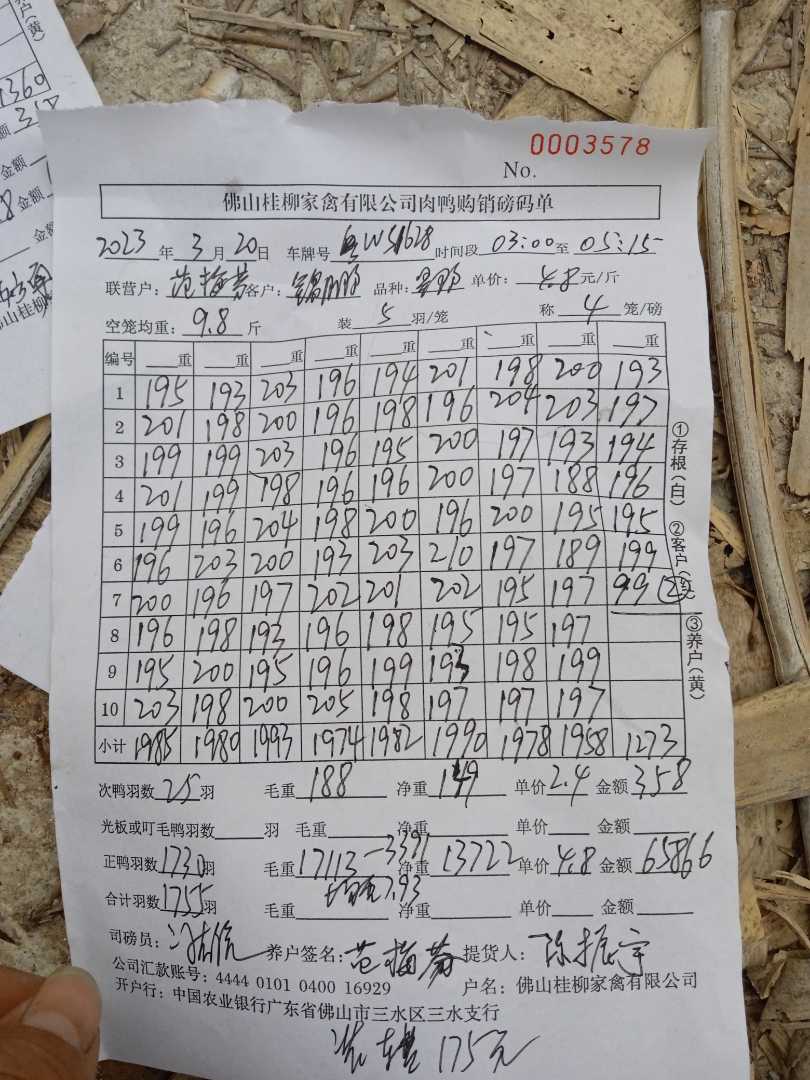 户(黄)
1360
额
金额
金额
金额
山桂柳
0003578
No.
佛山桂柳家禽有限公司肉鸭购销磅码单
2023 年 3 月 20 日 车牌号 粤WS1628 时间段 03:00 至 05:15
联营户: 范梅芳 客户: 品种: 单价: 4.8 元/斤
空笼均重: 9.8 斤 装 5 羽/笼 称 4 笼/磅
编号 重 重 重 重 重 重 重 重 重
1 195 193 203 196 194 201 198 200 193
2 201 198 200 196 198 196 204 203 197
3 199 199 203 196 195 200 197 193 194
4 201 199 198 196 196 200 197 188 196
5 199 196 204 198 200 196 200 195 195
6 196 203 200 193 203 210 197 189 199
7 200 196 197 202 201 202 195 197 99
8 196 198 193 196 198 195 195 197
9 195 200 195 196 199 193 198 199
10 203 198 200 205 198 197 197 197
小计 1985 1980 1993 1974 1982 1990 1978 1958 1273
①存根(白) ②客户(红) ③养户(黄)
次鸭羽数 25 羽 毛重 188 净重 149 单价 2.4 金额 358
光板或叮毛鸭羽数 羽 毛重 净重 单价 金额
正鸭羽数 1730 羽 毛重 17113-3391 净重 13722 单价 4.8 金额 65866
合计羽数 1755 羽 毛重 均重7.93 净重 单价 金额
司磅员: 养户签名: 范梅芳 提货人: 陈振宇
公司汇款账号: 4444 0101 0400 16929 户名: 佛山桂柳家禽有限公司
开户行: 中国农业银行广东省佛山市三水区三水支行
装车费 175元